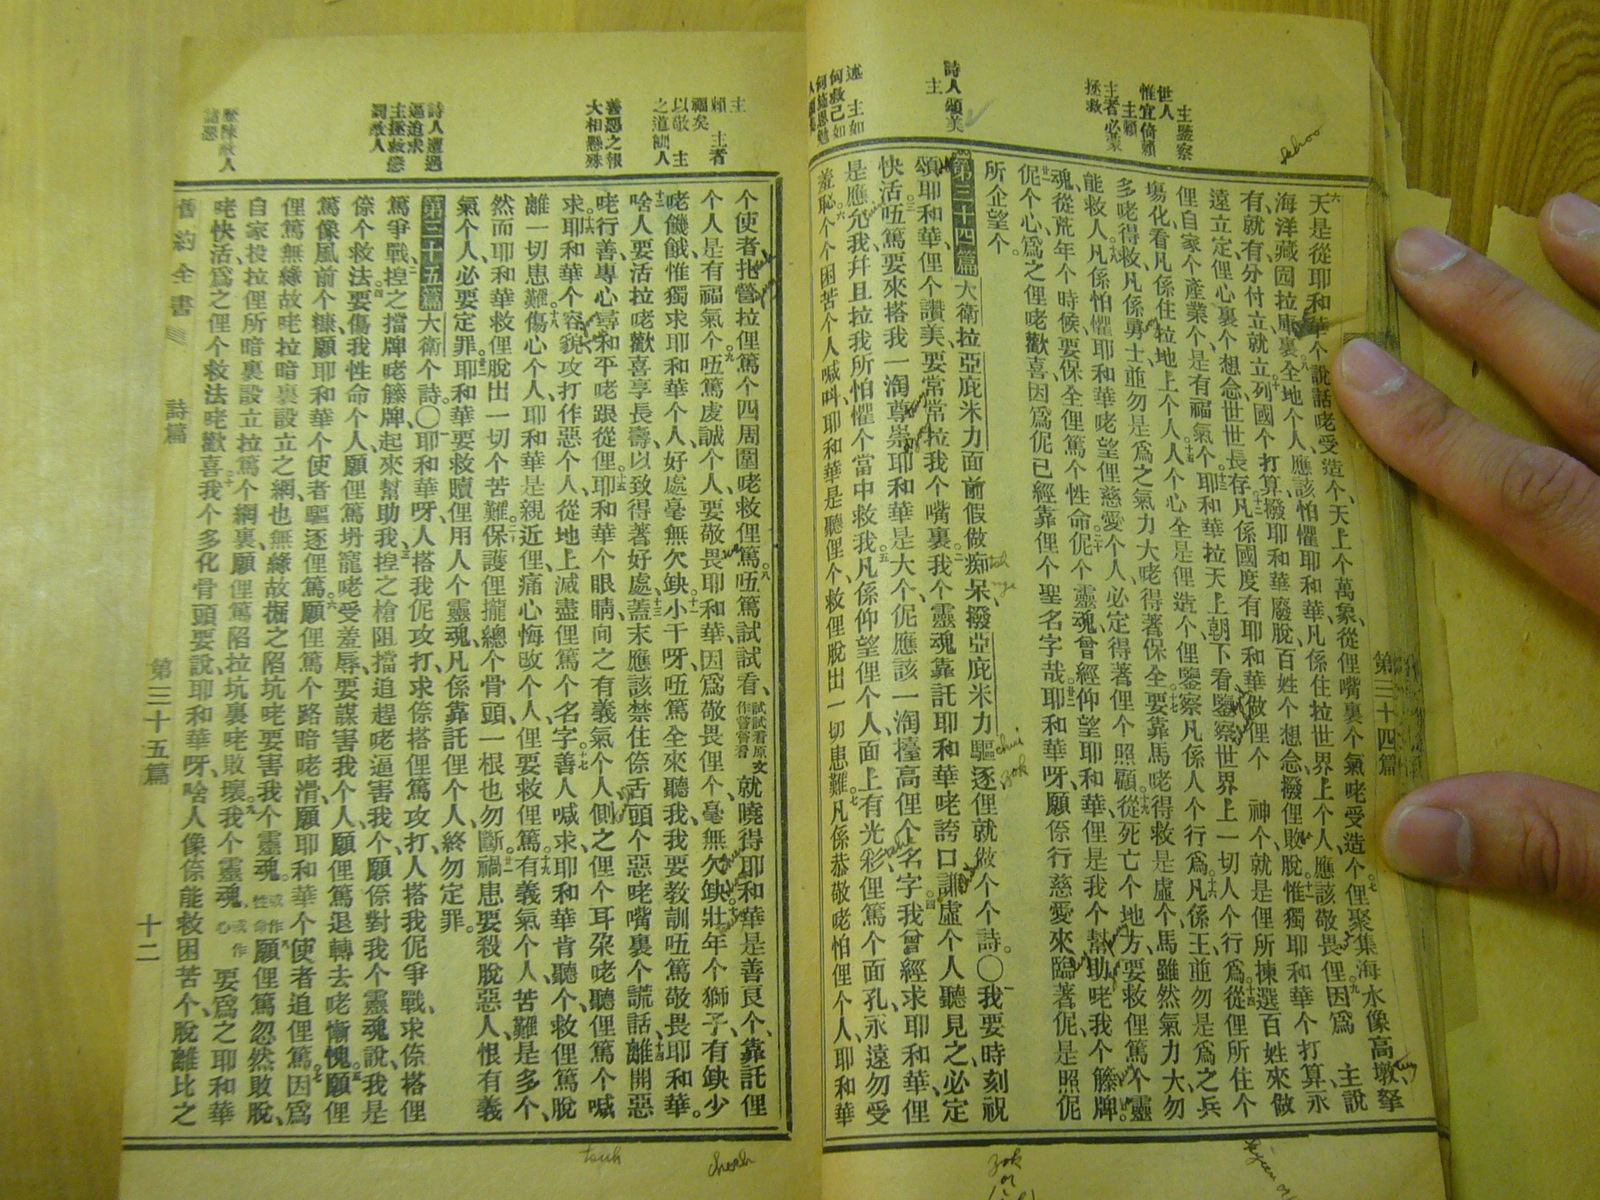 主鑒察
世人
惟宜倚賴
主賴
主者必蒙
拯救
詩人頌美
主
述主如
何救己如
第三十四篇
天是從耶和華个說話咾受造个、天上个萬象、從俚嘴裏个氣咾受造个。俚聚集海水像高墩、拏
海洋藏囥拉庫裏。全地个人、應該怕懼耶和華、凡係住拉世界上个人、應該敬畏俚。因爲 主說
有、就有、分付立、就立。列國个打算、撥耶和華廢脫、百姓个想念、撥俚敗脫。惟獨耶和華个打算、永
遠立定、俚心裏个想念、世世長存。凡係國度有耶和華做俚个 神个、就是俚所揀選百姓來做
俚自家个產業个、是有福氣个。耶和華拉天上朝下看、鑒察世界上一切人个行爲。從俚所住个
塲化、看凡係住拉地上个人。人个心全是俚造个、俚鑒察凡係人个行爲。凡係王、並勿是爲之兵
多咾得救、凡係勇士、並勿是爲之氣力大咾得著保全。要靠馬咾得救是虛个、馬雖然氣力大、勿
能救人。凡係怕懼耶和華咾望俚慈愛个人、必定得著俚个照顧。從死亡个地方要救俚篤个靈
魂、從荒年个時候、要保全俚篤个性命。伲个靈魂曾經仰望耶和華、俚是我个幫助咾我个籐牌。
伲个心、爲之俚咾歡喜、因爲伲已經靠俚个聖名字哉。耶和華呀、願倷行慈愛來臨著伲、是照伲
所企望个。
第三十四篇大衛拉亞庇米力面前假做痴呆、撥亞庇米力驅逐、俚就做个个詩。〇我要時刻祝
頌耶和華、俚个讚美要常常拉我个嘴裏。我个靈魂靠託耶和華咾誇口、謙虛个人聽見之、必定
快活。㕶篤要來搭我一淘尊崇耶和華是大个、伲應該一淘擡高俚个名字。我曾經求耶和華、俚
是應允我、幷且拉我所怕懼个當中救我。凡係仰望俚个人、面上有光彩、俚篤个面孔、永遠勿受
羞恥。个个困苦个人喊呌、耶和華是聽俚个、救俚脫出一切患難。凡係恭敬咾怕俚个人、耶和華
主
賴主者
福矣
以敬主
之道訓人
善惡之報
大相懸殊
詩人遭遇
逼迫求
主拯救懲
罰敵人
歷陳敵人
諸惡
个使者扎營拉俚篤个四周圍咾救俚篤。㕶篤試試看、試試看原文作嘗嘗看就曉得耶和華是善良个、靠託俚
个人、是有福氣个。㕶篤虔誠个人、要敬畏耶和華、因爲敬畏俚个、毫無欠缺。壯年个獅子、有缺少
咾饑餓、惟獨求耶和華个人、好處毫無欠缺。小干呀、㕶篤全來聽我、我要教訓㕶篤敬畏耶和華。
啥人要活拉咾歡喜享長壽、以致得著好處、蓋末應該禁住倷舌頭个惡、咾嘴裏个謊話。離開惡
咾行善、專心尋和平咾跟從俚。耶和華个眼睛向之有義氣个人、側之俚个耳朶咾聽俚篤个喊
求。耶和華个容貌攻打作惡个人、從地上滅盡俚篤个名字。善人喊求、耶和華肯聽个、救俚篤脫
離一切患難。傷心个人、耶和華是親近俚、痛心悔改个人、俚要救俚篤。有義氣个人、苦難是多个、
然而耶和華救俚脫出一切个苦難。保護俚攏總个骨頭、一根也勿斷。禍患要殺脫惡人、恨有義
氣个人、必要定罪。耶和華要救贖俚用人个靈魂、凡係靠託俚个人、終勿定罪。
第三十五篇大衛个詩。〇耶和華呀、人搭我伲攻打、求倷搭俚篤攻打、人搭我伲爭戰、求倷搭俚
篤爭戰。揑之擋牌咾籐牌、起來幫助我。揑之槍阻擋追趕咾逼害我个、願倷對我个靈魂說、我是
倷个救法。要傷我性命个人、願俚篤坍寵咾受羞辱、要謀害我个人、願俚篤退轉去咾慚愧。願俚
篤像風前个糠、願耶和華个使者驅逐俚篤。願俚篤个路暗咾滑、願耶和華个使者追俚篤。因爲
俚篤無緣故咾拉暗裏設立之網、也無緣故掘之陷坑咾要害我个靈魂。或作性命願俚篤忽然敗脫、
自家投拉俚所暗裏設立拉篤个網裏、願俚篤陷拉坑裏咾敗壞。我个靈魂、或作心要爲之耶和華
咾快活、爲之俚个救法咾歡喜。我个多化骨頭要說、耶和華呀、啥人像倷能救困苦个、脫離比之
舊約全書 詩篇 第三十五篇 十二
zok
chesh